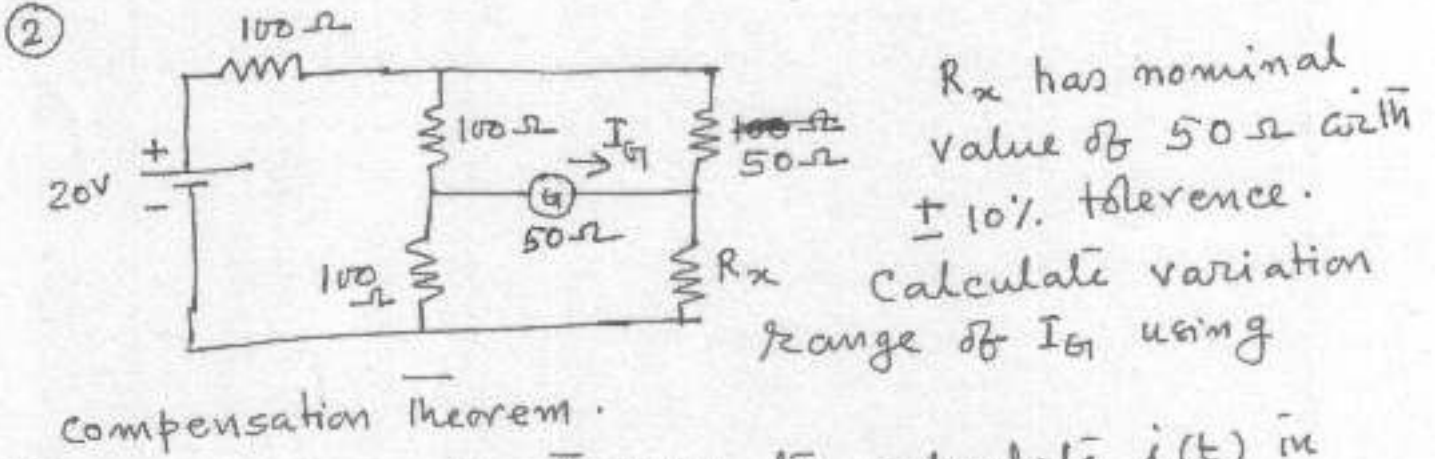 ②
100Ω
20V
+
-
100Ω
I_G
→
G
50Ω
100Ω
100Ω
50Ω
R_x
R_x has nominal
value of 50Ω with
± 10%. tolerence.
Calculate variation
range of I_G using
compensation Theorem.
calculate i(t) in